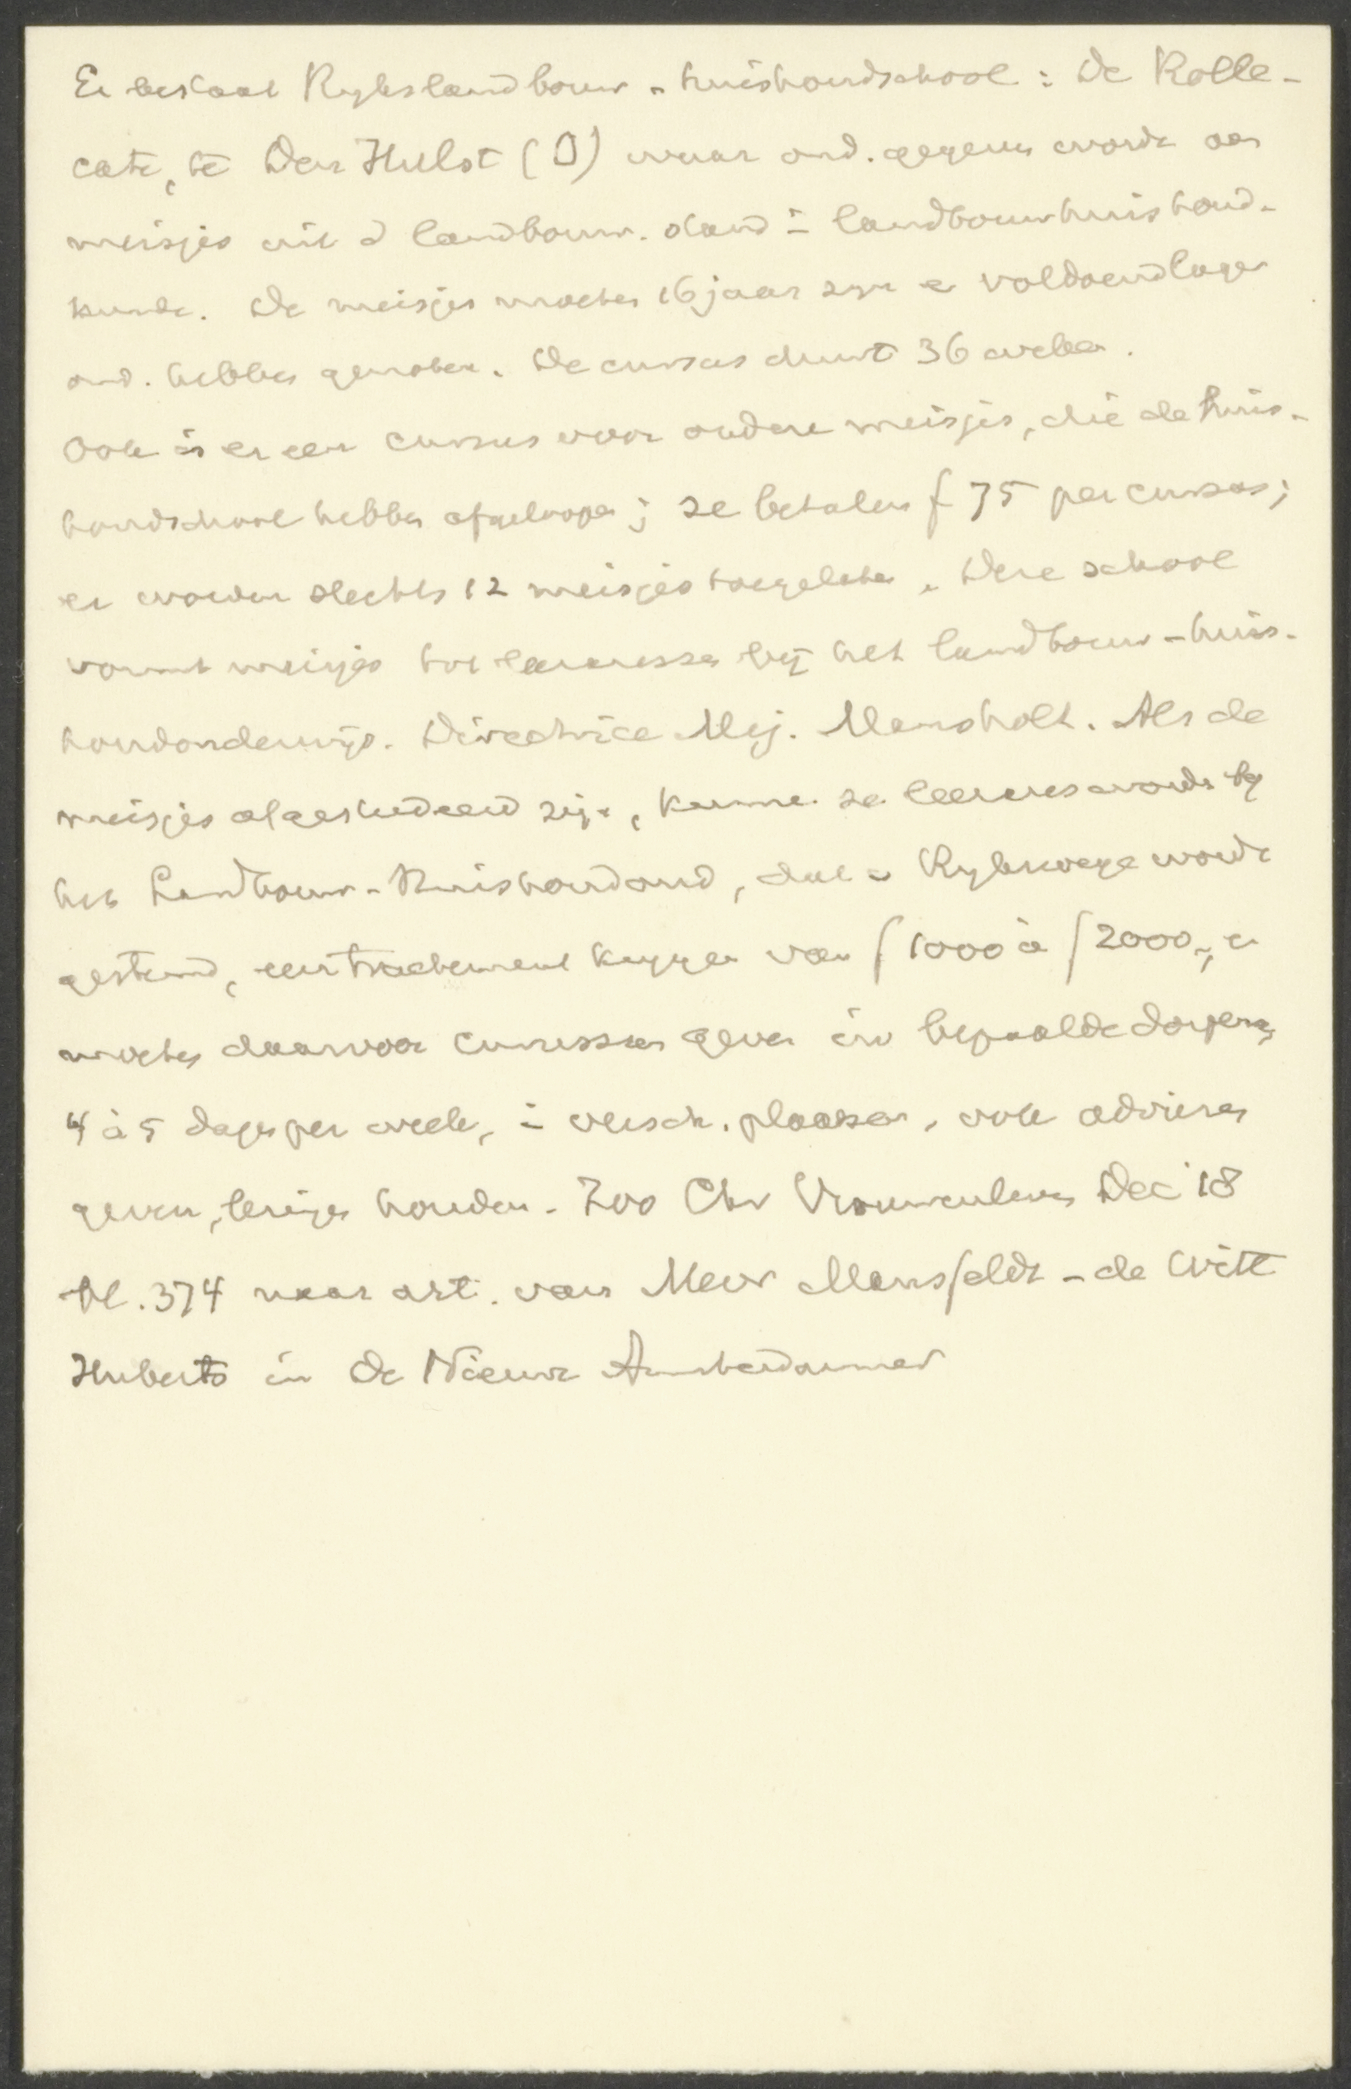 Er bestaat Rykslandbouw-huishoudschool: De Rolle-
cate, te Den Hulst (O) waar ond. gegeven wordt aan
meisjes uit d landbouw. stand i landbouwhuishoud-
kunde. De meisjes moeten 16 jaar zyn e voldoend lager
ond. hebben genoten. De cursus duurt 36 weken.
Ook is er een cursus voor oudere meisjes, die de huis-
houdschool hebben afgeloopen; ze betalen f 75 per cursus;
er worden slechts 12 meisjes toegelaten. Deze school
vormt meisjes tot leeraressen bij het landbouw-huis-
houdonderwijs. Directrice Mej. Mansholt. Als de
meisjes afgestudeerd zijn, kunnen ze leerares worden bij
het Landbouw-Huishoudond, dat v Rykswege wordt
gesteund, een tractement krygen van f 1000 à f 2000,- e
moeten daarvoor cursussen geven in bepaalde dorpen,
4 à 5 dagen per week, i versch. plaatsen, ook adviezen
geven, lezingen houden. Zoo Chr Vrouwenleven Dec '18
bl. 374 naar art. van Mevr Mansfeldt - de Witt
Huberts in De Nieuwe Amsterdammer